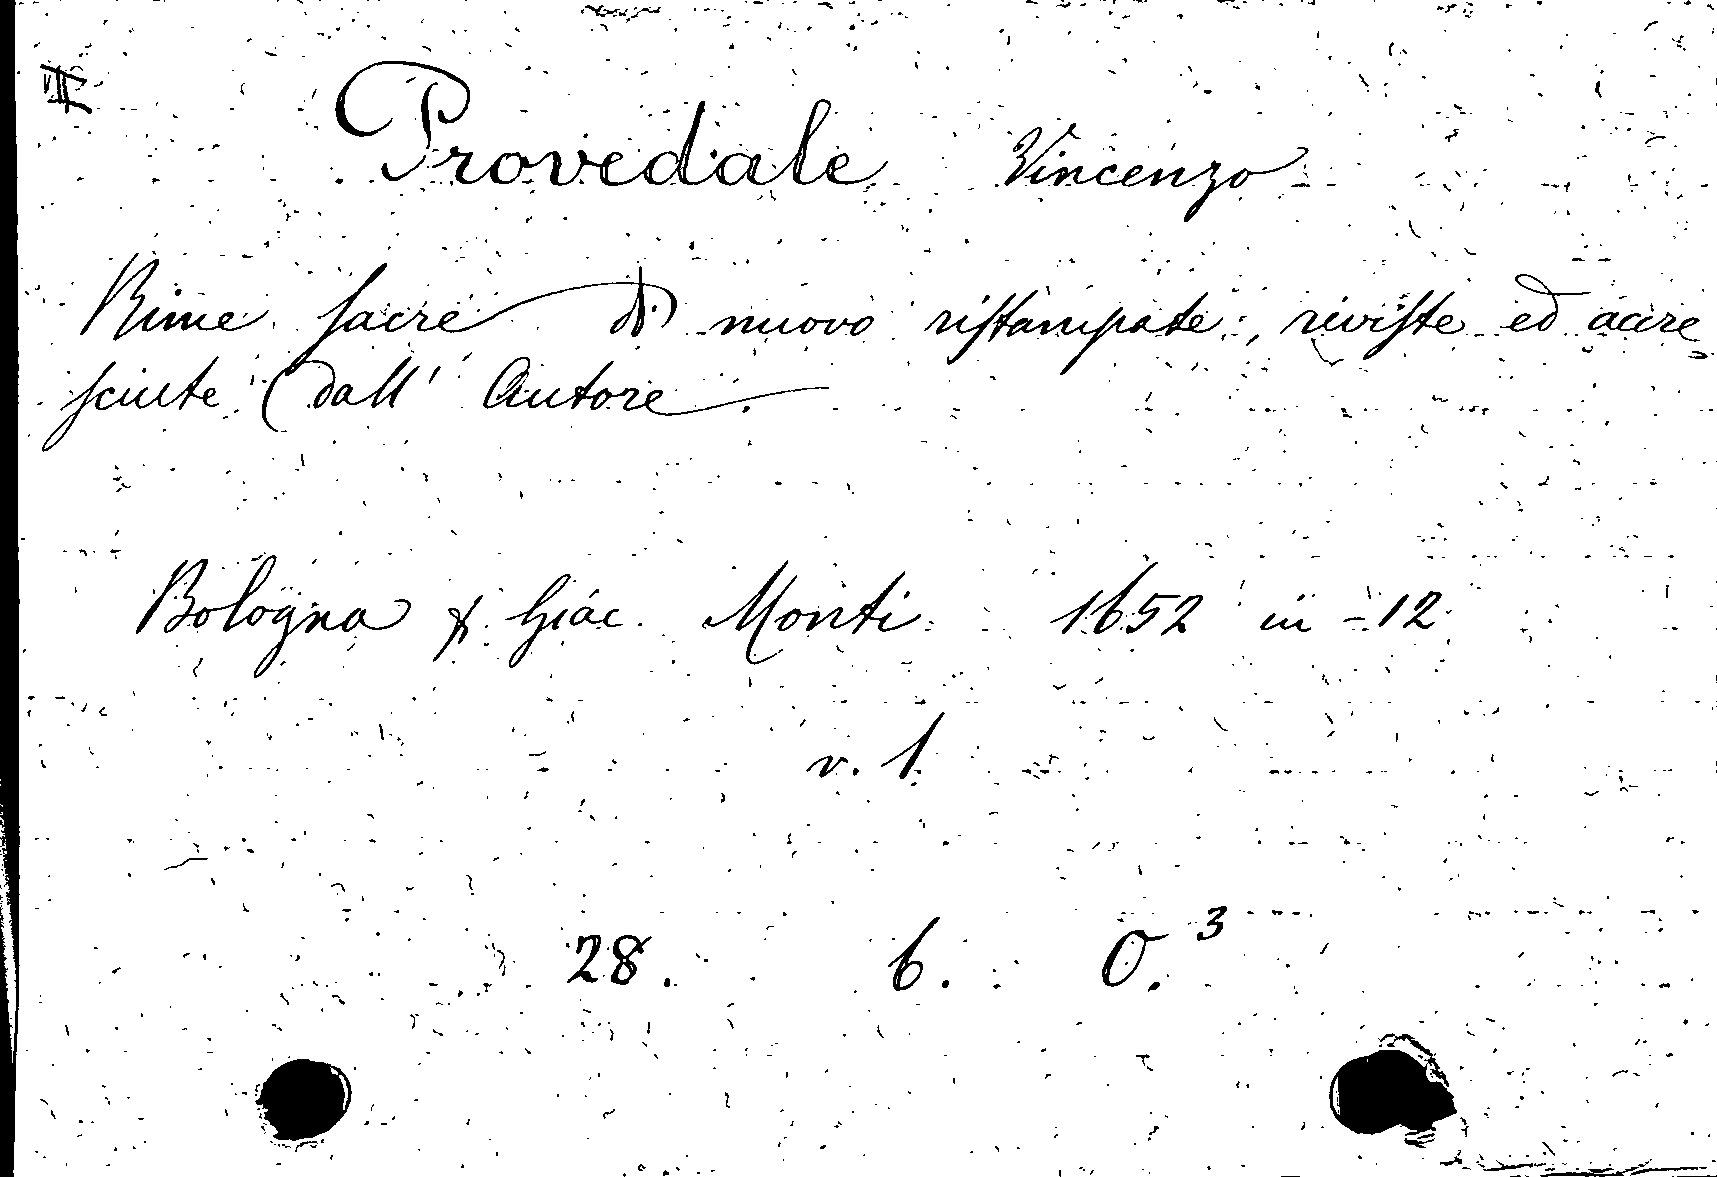 Provedale Vincenzo
Rime sacre di nuovo ristampate, reviste ed accre
sciute dall' Autore.
Bologna p. Giac. Monti 1652 in-12
v. 1
28. 6. O.3